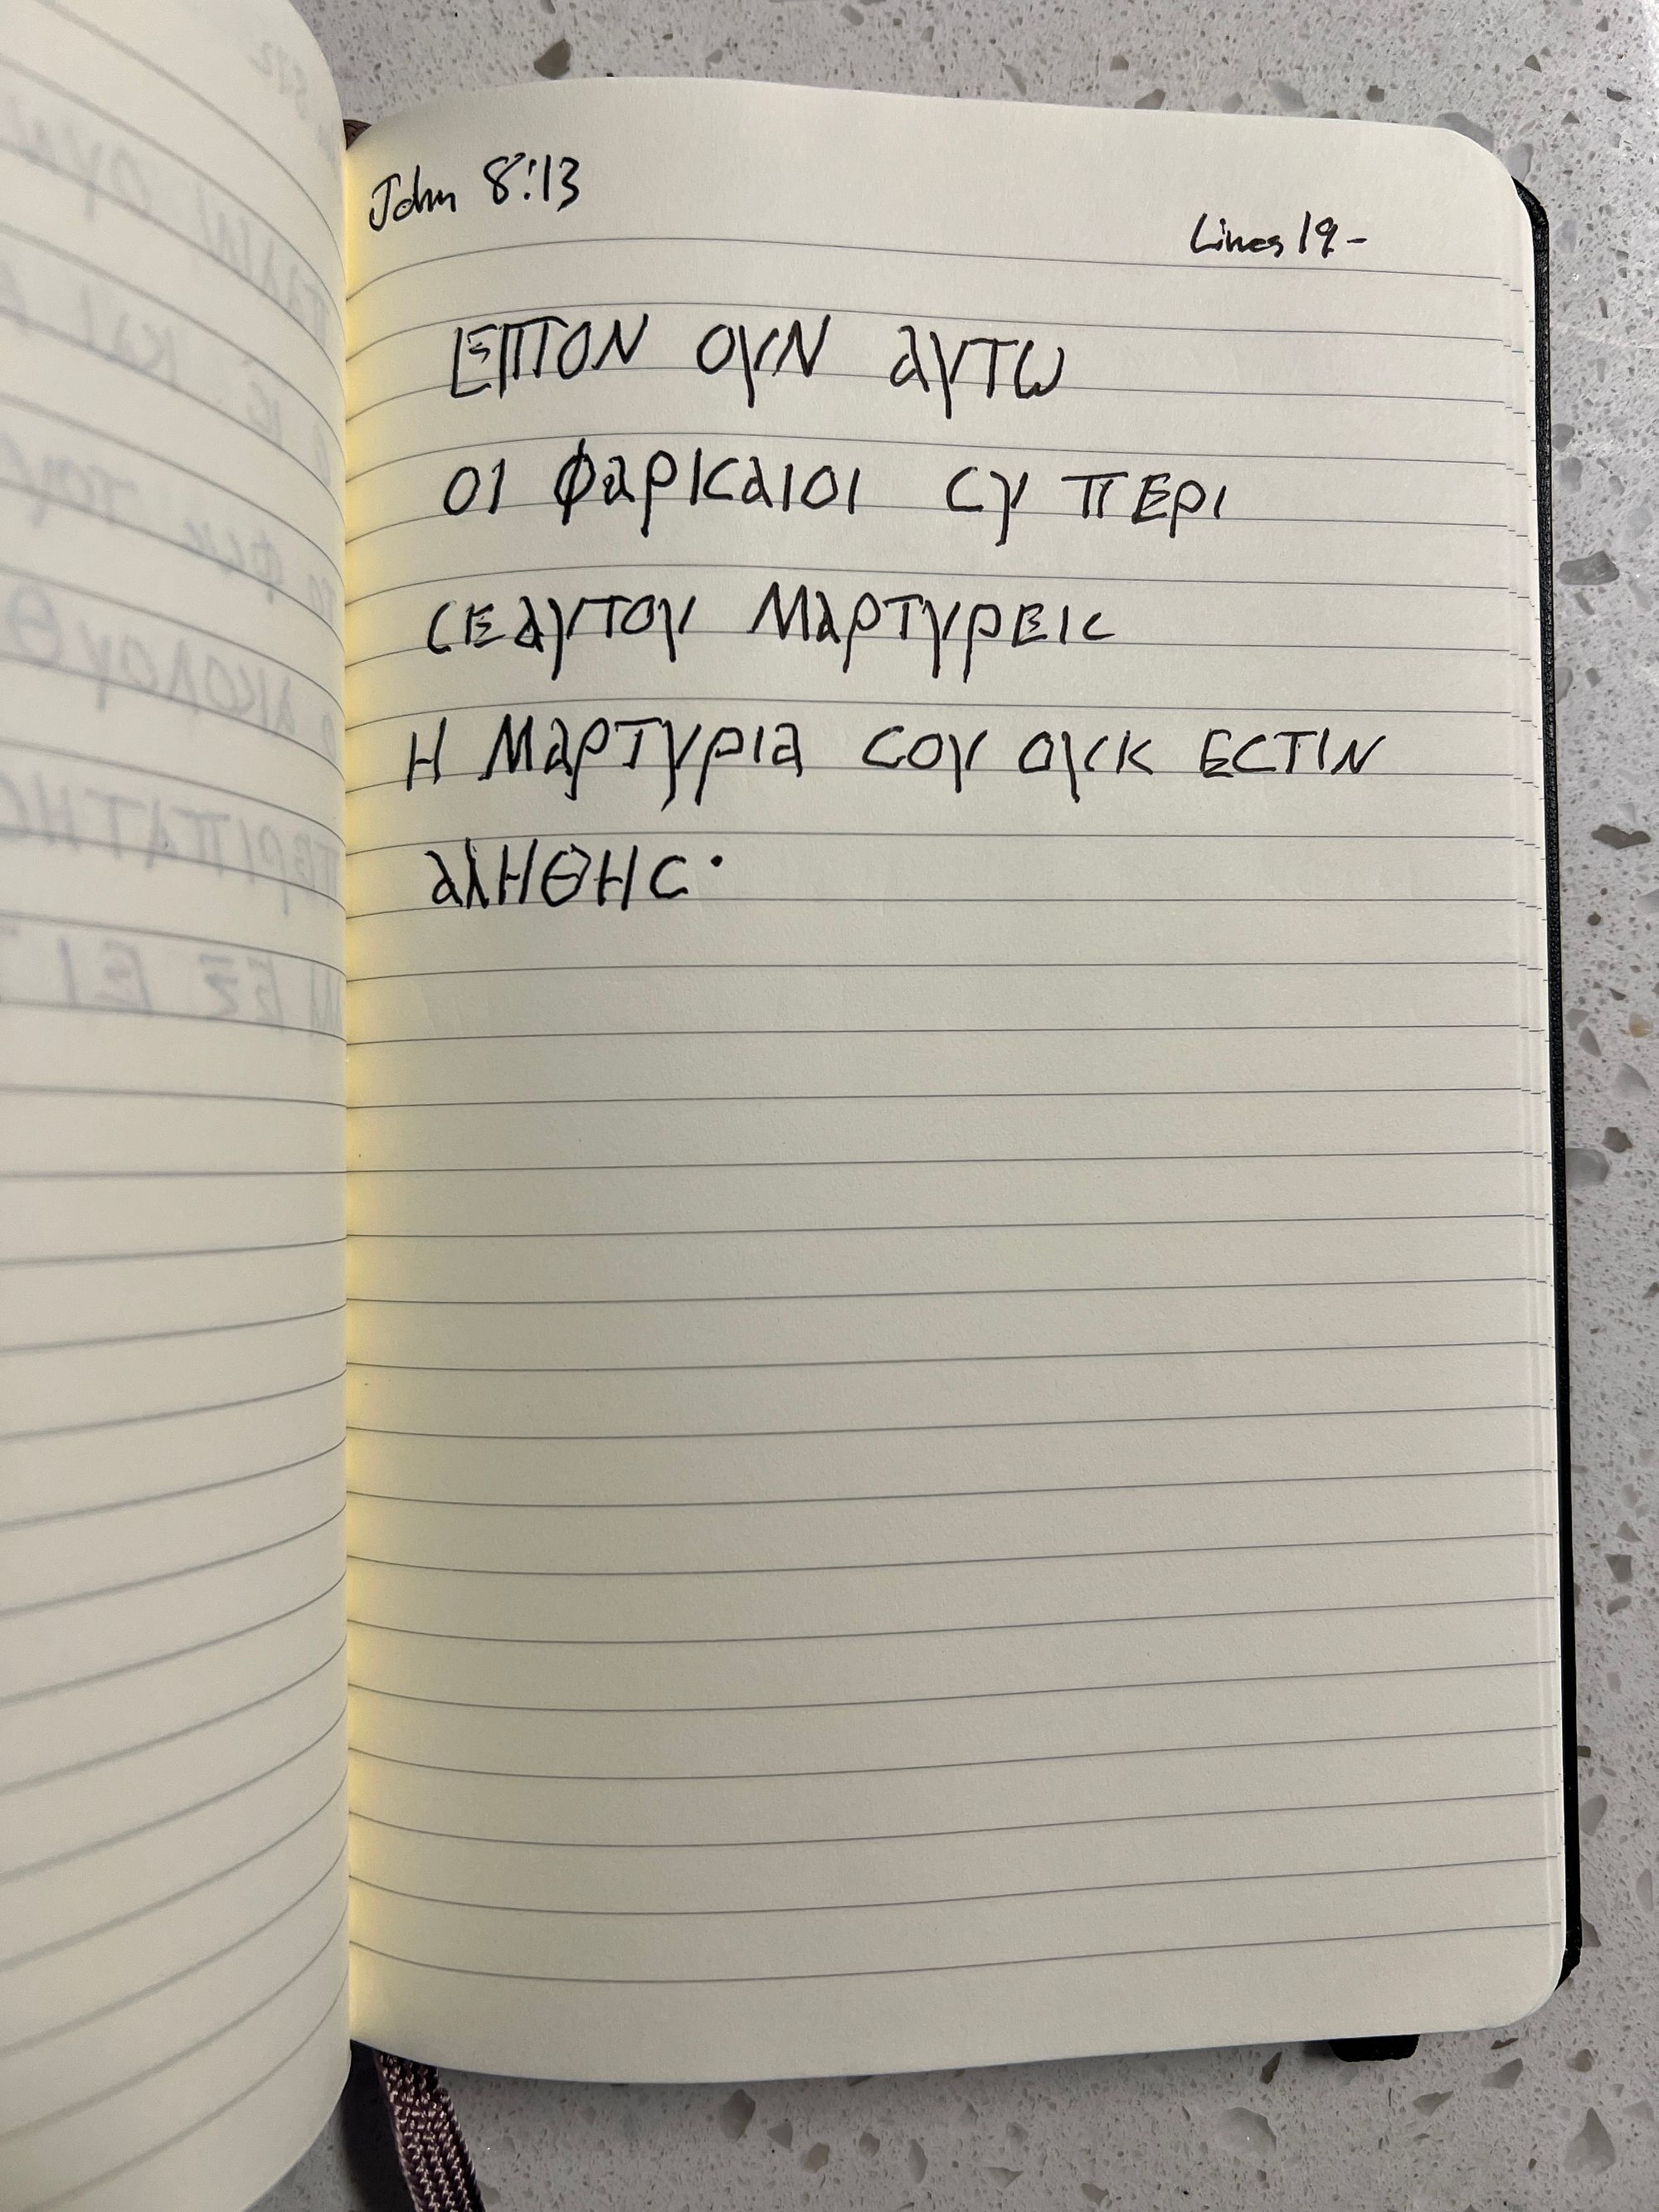 John 8:13
Lines 19-
ΕΙΠΟΝ ΟΥΝ ΑΥΤΩ
ΟΙ ΦΑΡΙϹΑΙΟΙ ϹΥ ΠΕΡΙ
ϹΕΑΥΤΟΥ ΜΑΡΤΥΡΕΙϹ
Η ΜΑΡΤΥΡΙΑ ϹΟΥ ΟΥΚ ΕϹΤΙΝ
ΑΛΗΘΗϹ·